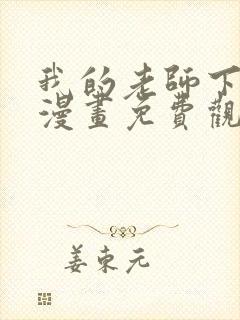 我的老師下
漫畫免費觀
姜东元